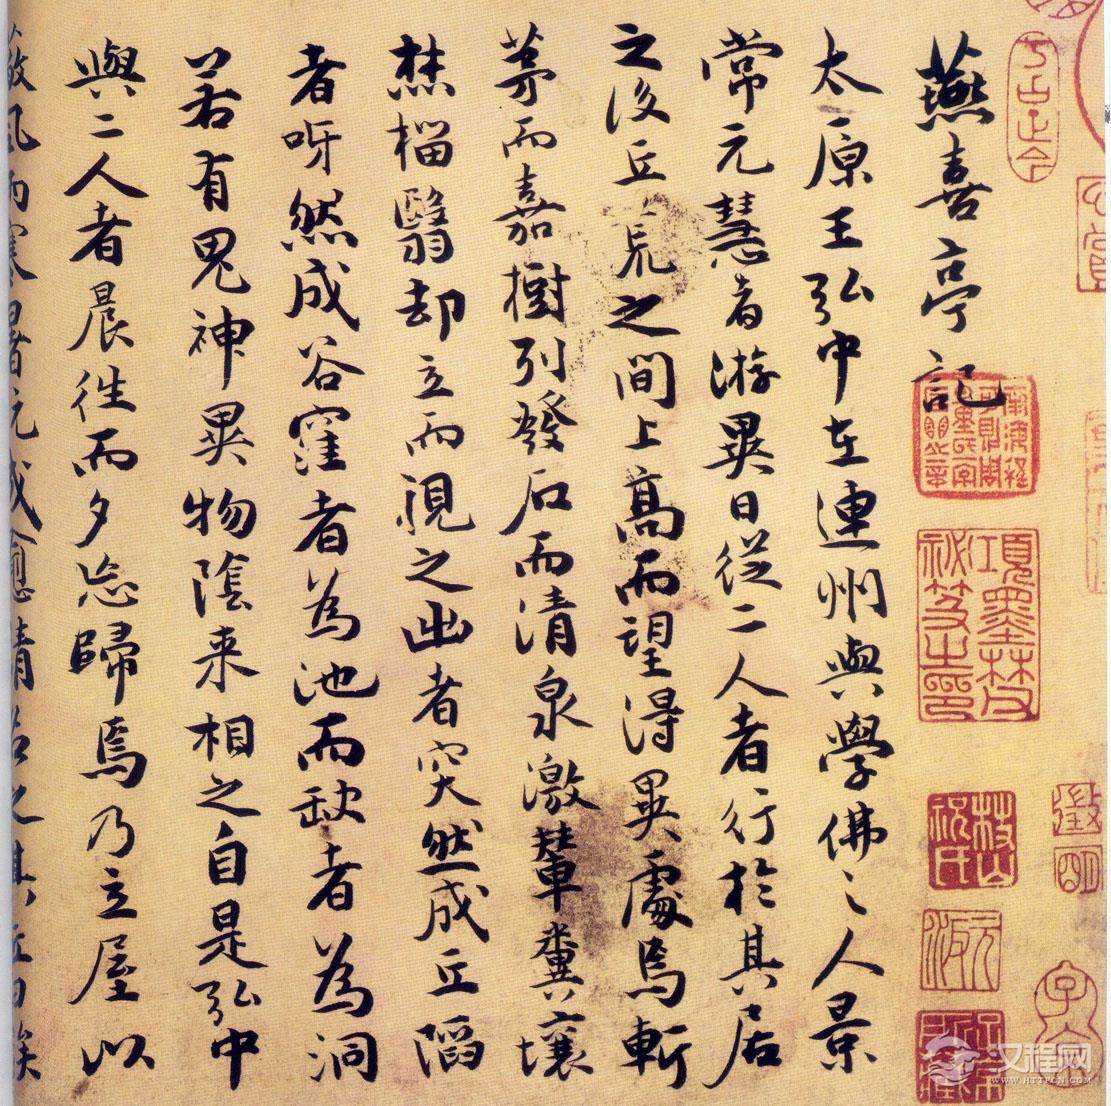 燕喜亭記
太原王弘中在連州與學佛之人景
常元慧者游異日從二人者行於其居
之後丘荒之間上高而望得異處焉斬
茅而嘉樹列發石而清泉激輦糞壤
焚椔翳却立而視之出者突然成丘陷
者呀然成谷窪者為池而缺者為洞
若有鬼神異物陰来相之自是弘中
與二人者晨往而夕忘歸焉乃立屋以
風雨寒暑既成愈請名之其丘曰竢
項墨林祕笈之印
徵明
汉程网
WWW.HTTPCN.COM